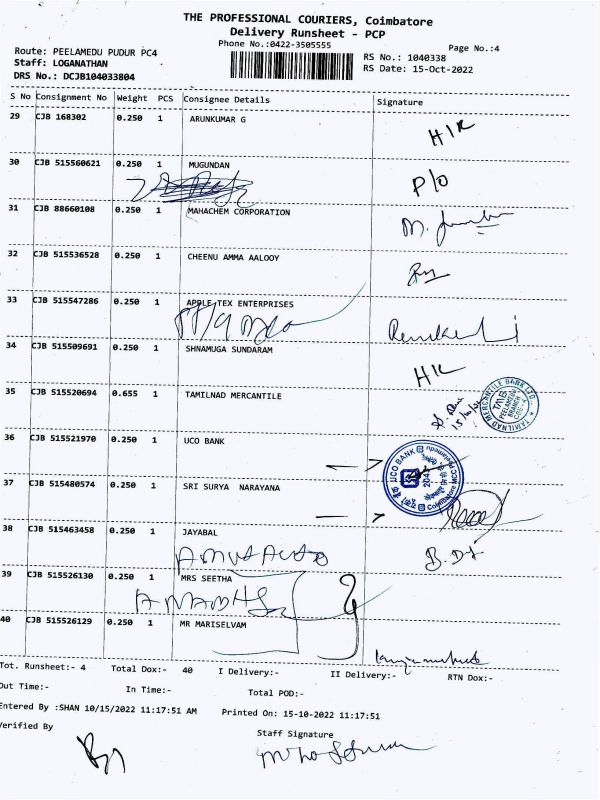 THE PROFESSIONAL COURIERS, Coimbatore
Delivery Runsheet - PCP
Phone No.:0422-3505555
Page No.:4
Route: PEELAMEDU PUDUR PC4
Staff: LOGANATHAN
DRS No.: DCJB104033804
RS No.: 1040338
RS Date: 15-Oct-2022
S No Consignment No Weight PCS Consignee Details Signature
29 CJB 168302 0.250 1 ARUNKUMAR G
30 CJB 515560621 0.250 1 MUGUNDAN P/O
31 CJB 88660108 0.250 1 MAHACHEM CORPORATION
32 CJB 515536528 0.250 1 CHEENU AMMA AALOOY
33 CJB 515547286 0.250 1 APPLE TEX ENTERPRISES
34 CJB 515509691 0.250 1 SHNAMUGA SUNDARAM
35 CJB 515520694 0.655 1 TAMILNAD MERCANTILE
TAMILNAD MERCANTILE BANK LTD.
TMB
PEELAMEDU
BRANCH
36 CJB 515521970 0.250 1 UCO BANK
UCO BANK
37 CJB 515480574 0.250 1 SRI SURYA NARAYANA
Coimbatore
38 CJB 515463458 0.250 1 JAYABAL
39 CJB 515526130 0.250 1 MRS SEETHA
40 CJB 515526129 0.250 1 MR MARISELVAM
Tot. Runsheet:- 4 Total Dox:- 40 I Delivery:- II Delivery:- RTN Dox:-
Out Time:- In Time:- Total POD:-
Entered By :SHAN 10/15/2022 11:17:51 AM Printed On: 15-10-2022 11:17:51
Verified By Staff Signature